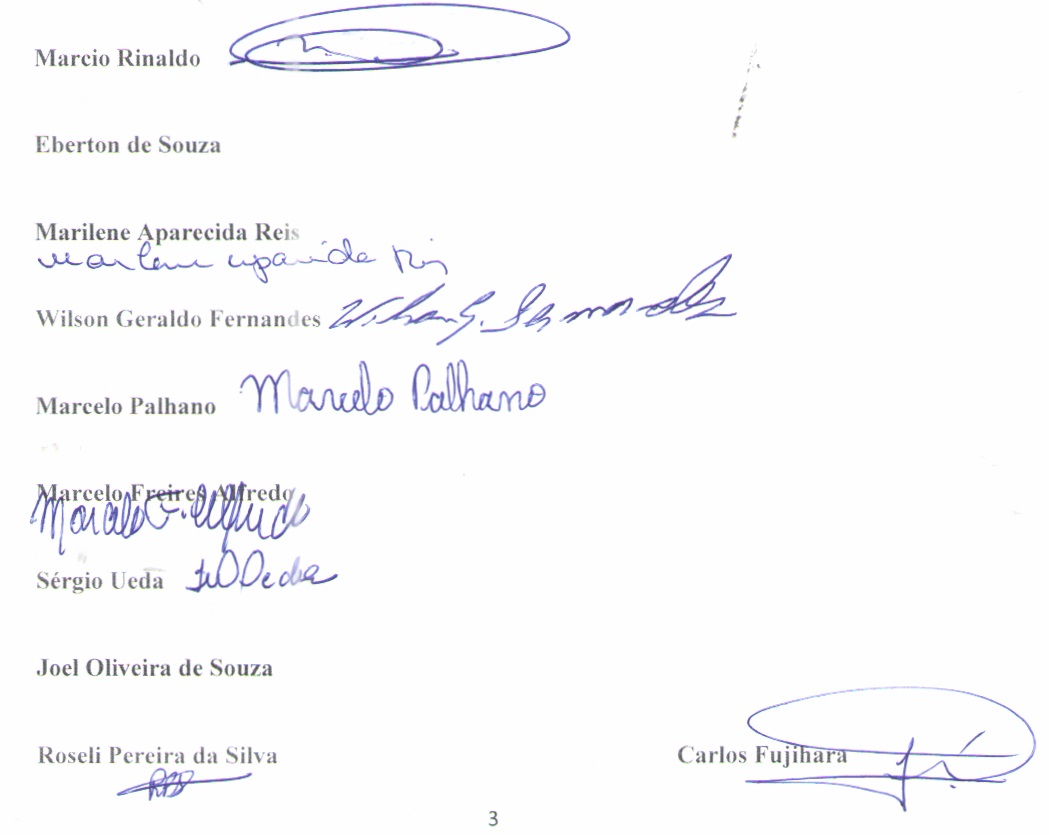 Marcio Rinaldo
Eberton de Souza
Marilene Aparecida Reis
Marilene Aparecida Reis
Wilson Geraldo Fernandes Wilson G. Fernandes
Marcelo Palhano Marcelo Palhano
Marcelo Freires Alfredo
Marcelo F. Alfredo
Sérgio Ueda
Joel Oliveira de Souza
Roseli Pereira da Silva Carlos Fujihara
3